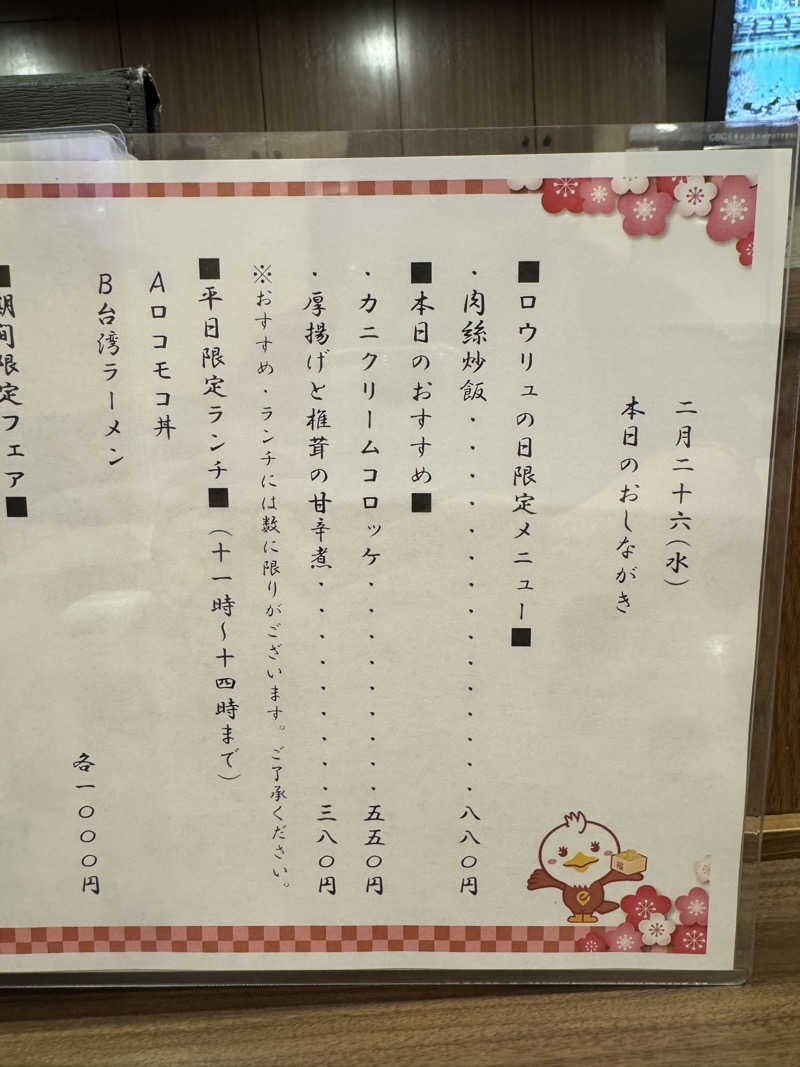 二月二十六(水)
本日のおしながき
■ロウリュの日限定メニュー■
・肉絲炒飯・・・・・・・・・・・・・・・八八〇円
■本日のおすすめ■
・カニクリームコロッケ・・・・・・・・・五五〇円
・厚揚げと椎茸の甘辛煮・・・・・・・・・三八〇円
※おすすめ・ランチには数に限りがございます。ご了承ください。
■平日限定ランチ■(十一時〜十四時まで)
Aロコモコ丼
B台湾ラーメン
各一〇〇〇円
■期間限定フェア■